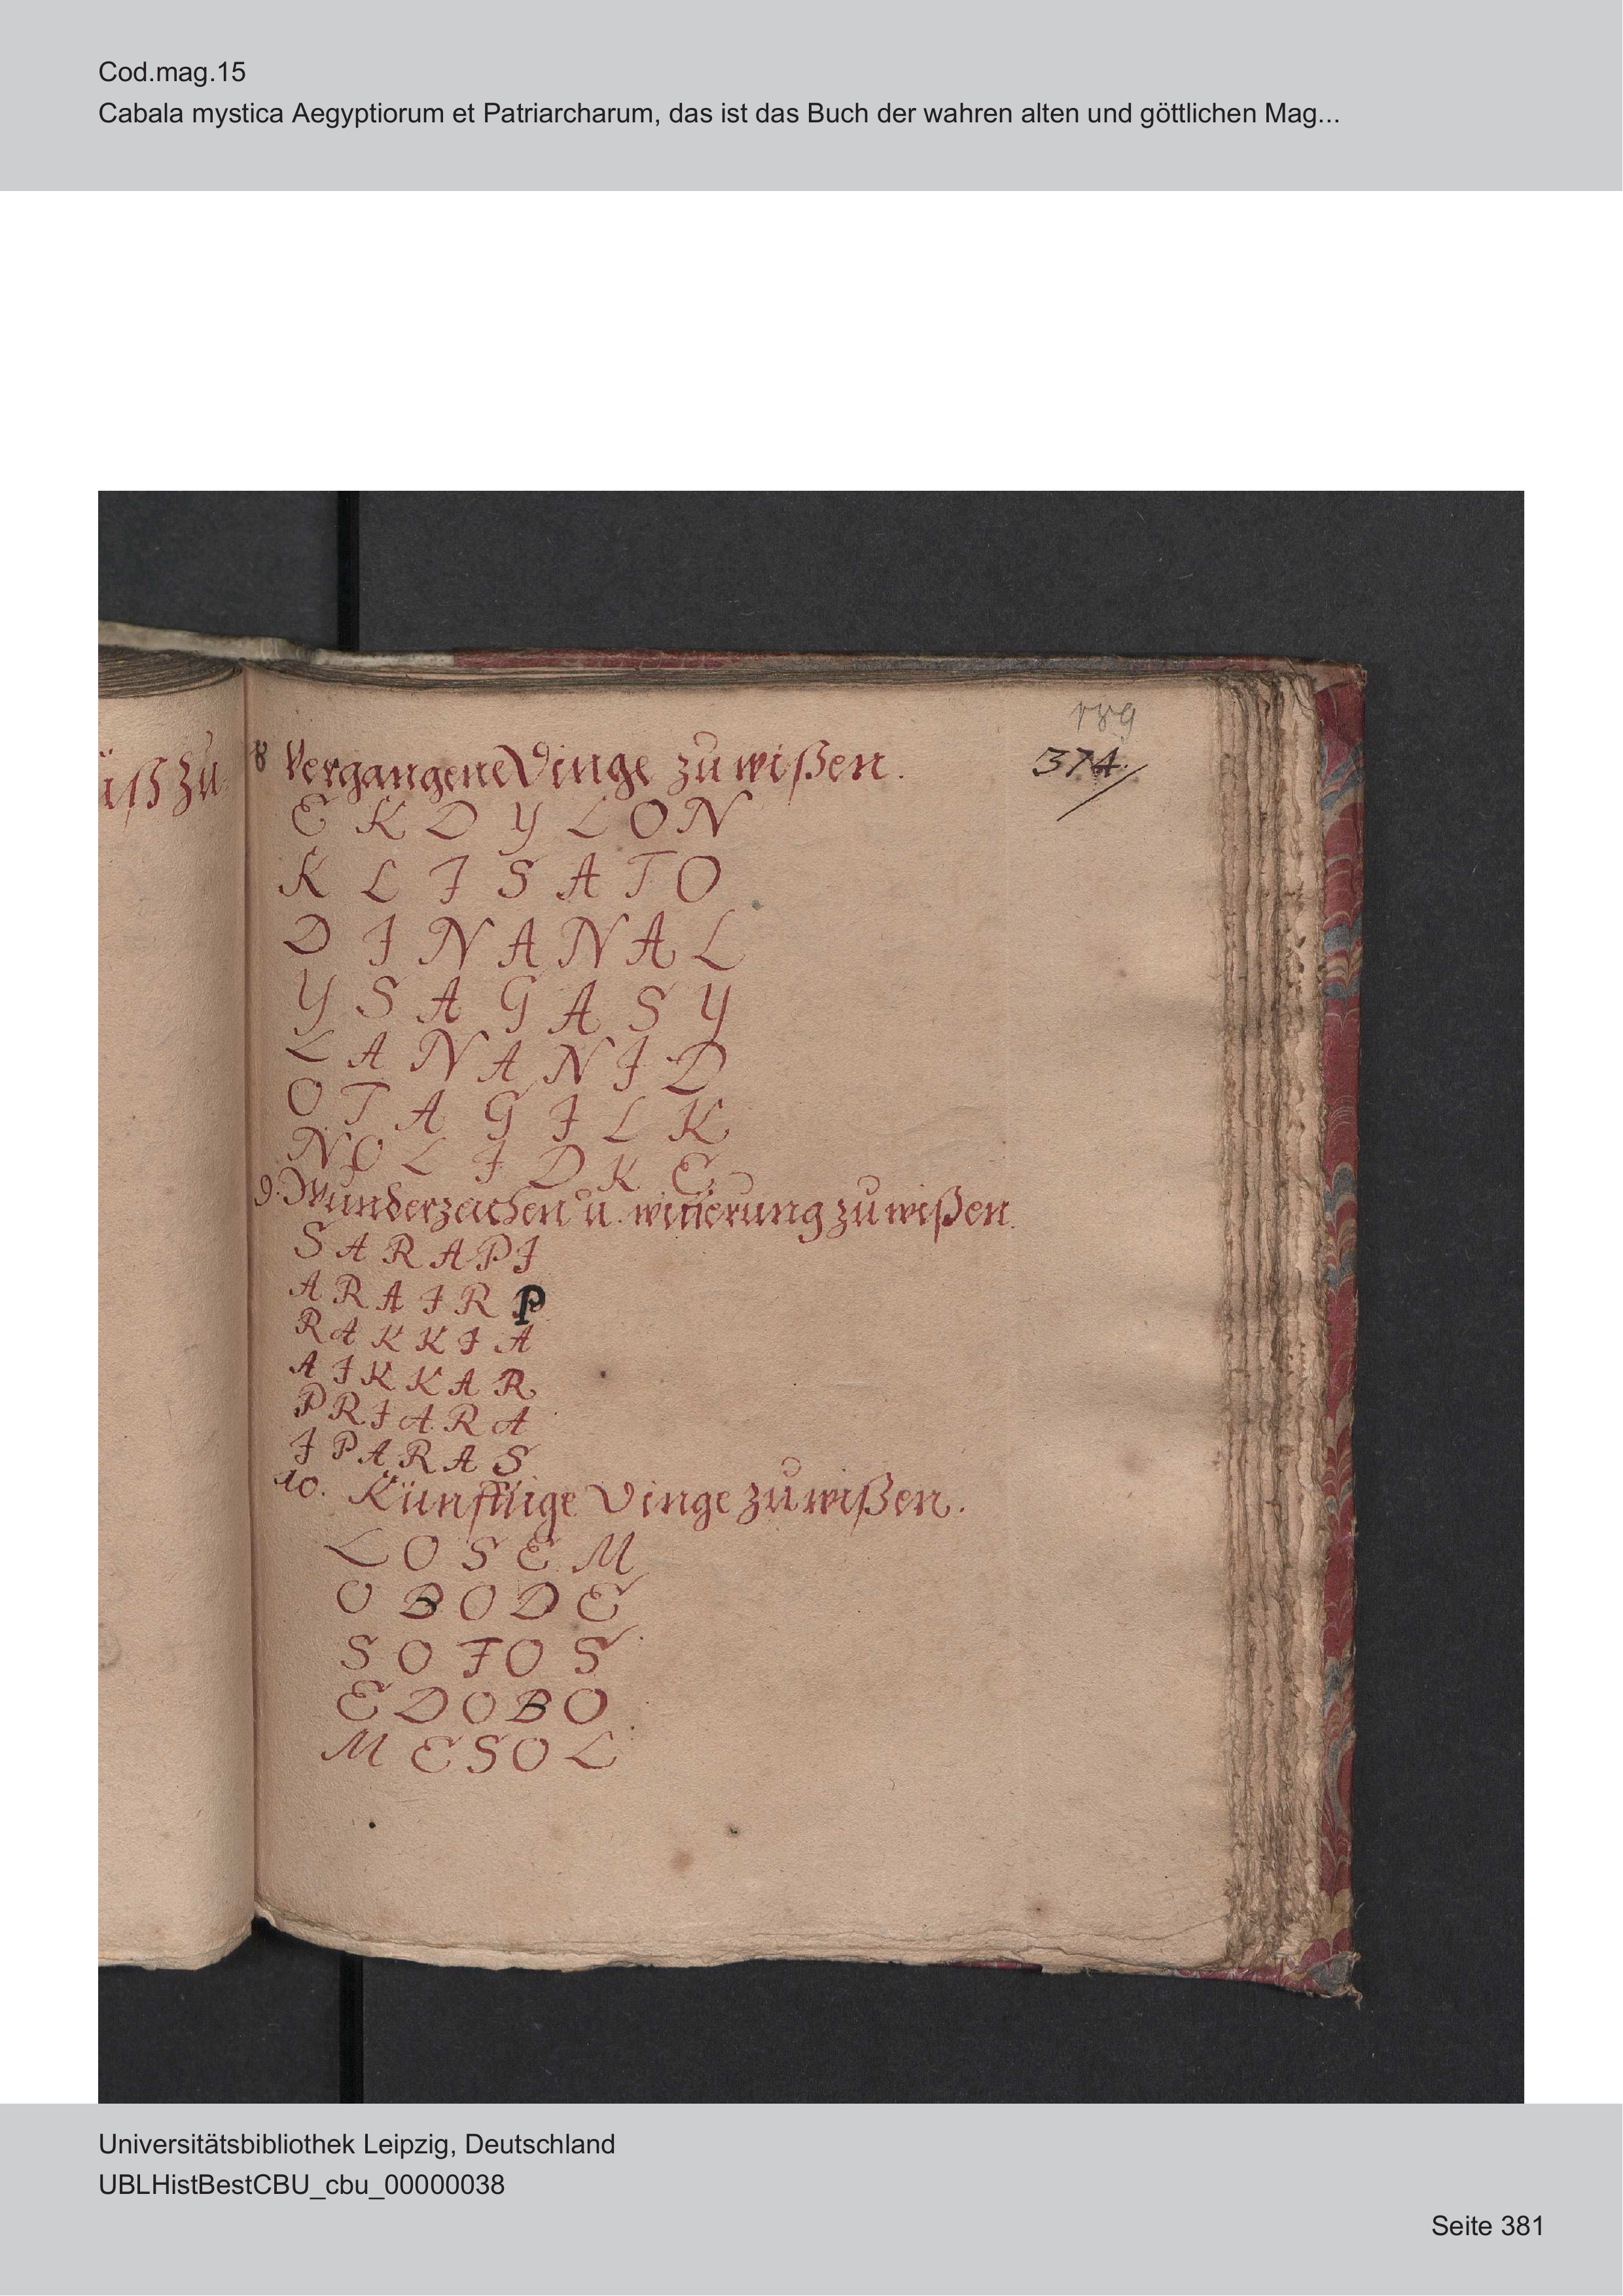 Cod.mag.15
Cabala mystica Aegyptiorum et Patriarcharum, das ist das Buch der wahren alten und göttlichen Mag...
189
374.
üß zu
8 Vergangene Dinge zu wißen.
E K D Y L O N
K L I S A T O
D I N A N A L
Y S A G A S Y
L A N A N I D
O T A G I L K
N O L I D K E
9. Wunderzeichen u. witterung zu wißen.
S A R A P I
A R A I R P
R A K K I A
A I K K A R
P R I A R A
I P A R A S
10. Künfftige Dinge zu wißen.
L O S E M
O B O D E
S O F O S
E D O B O
M E S O L
Universitätsbibliothek Leipzig, Deutschland
UBLHistBestCBU_cbu_00000038
Seite 381